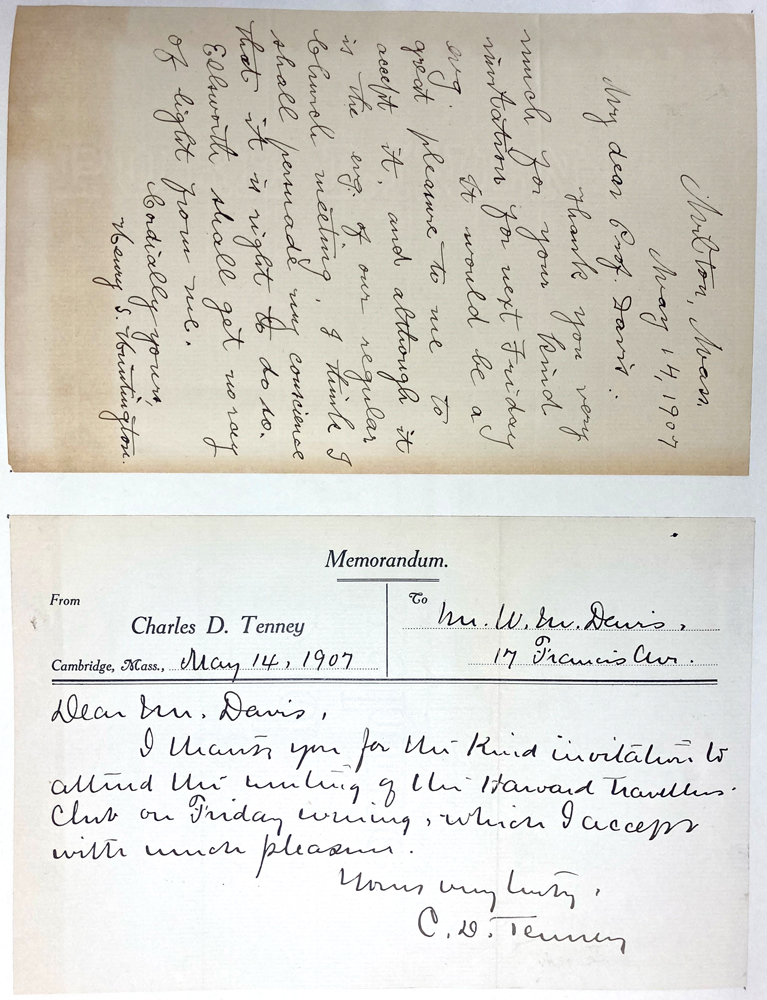 Milton, Mass.
May 14, 1907
My dear Prof. Davis:
Thank you very
much for your kind
invitation for next Friday
evg. It would be a
great pleasure to me to
accept it, and although it
is the evg. of our regular
Church meeting, I think I
shall persuade my conscience
that it is right to do so.
Ellsworth shall get no ray
of light from me.
Cordially yours,
Henry S. Huntington.
Memorandum.
From
To
Charles D. Tenney
Mr. W. M. Davis,
Cambridge, Mass., May 14, 1907
17 Francis Ave.
Dear Mr. Davis,
I thank you for the kind invitation to
attend the meeting of the Harvard Travellers
Club on Friday evening, which I accept
with much pleasure.
Yours very truly,
C. D. Tenney